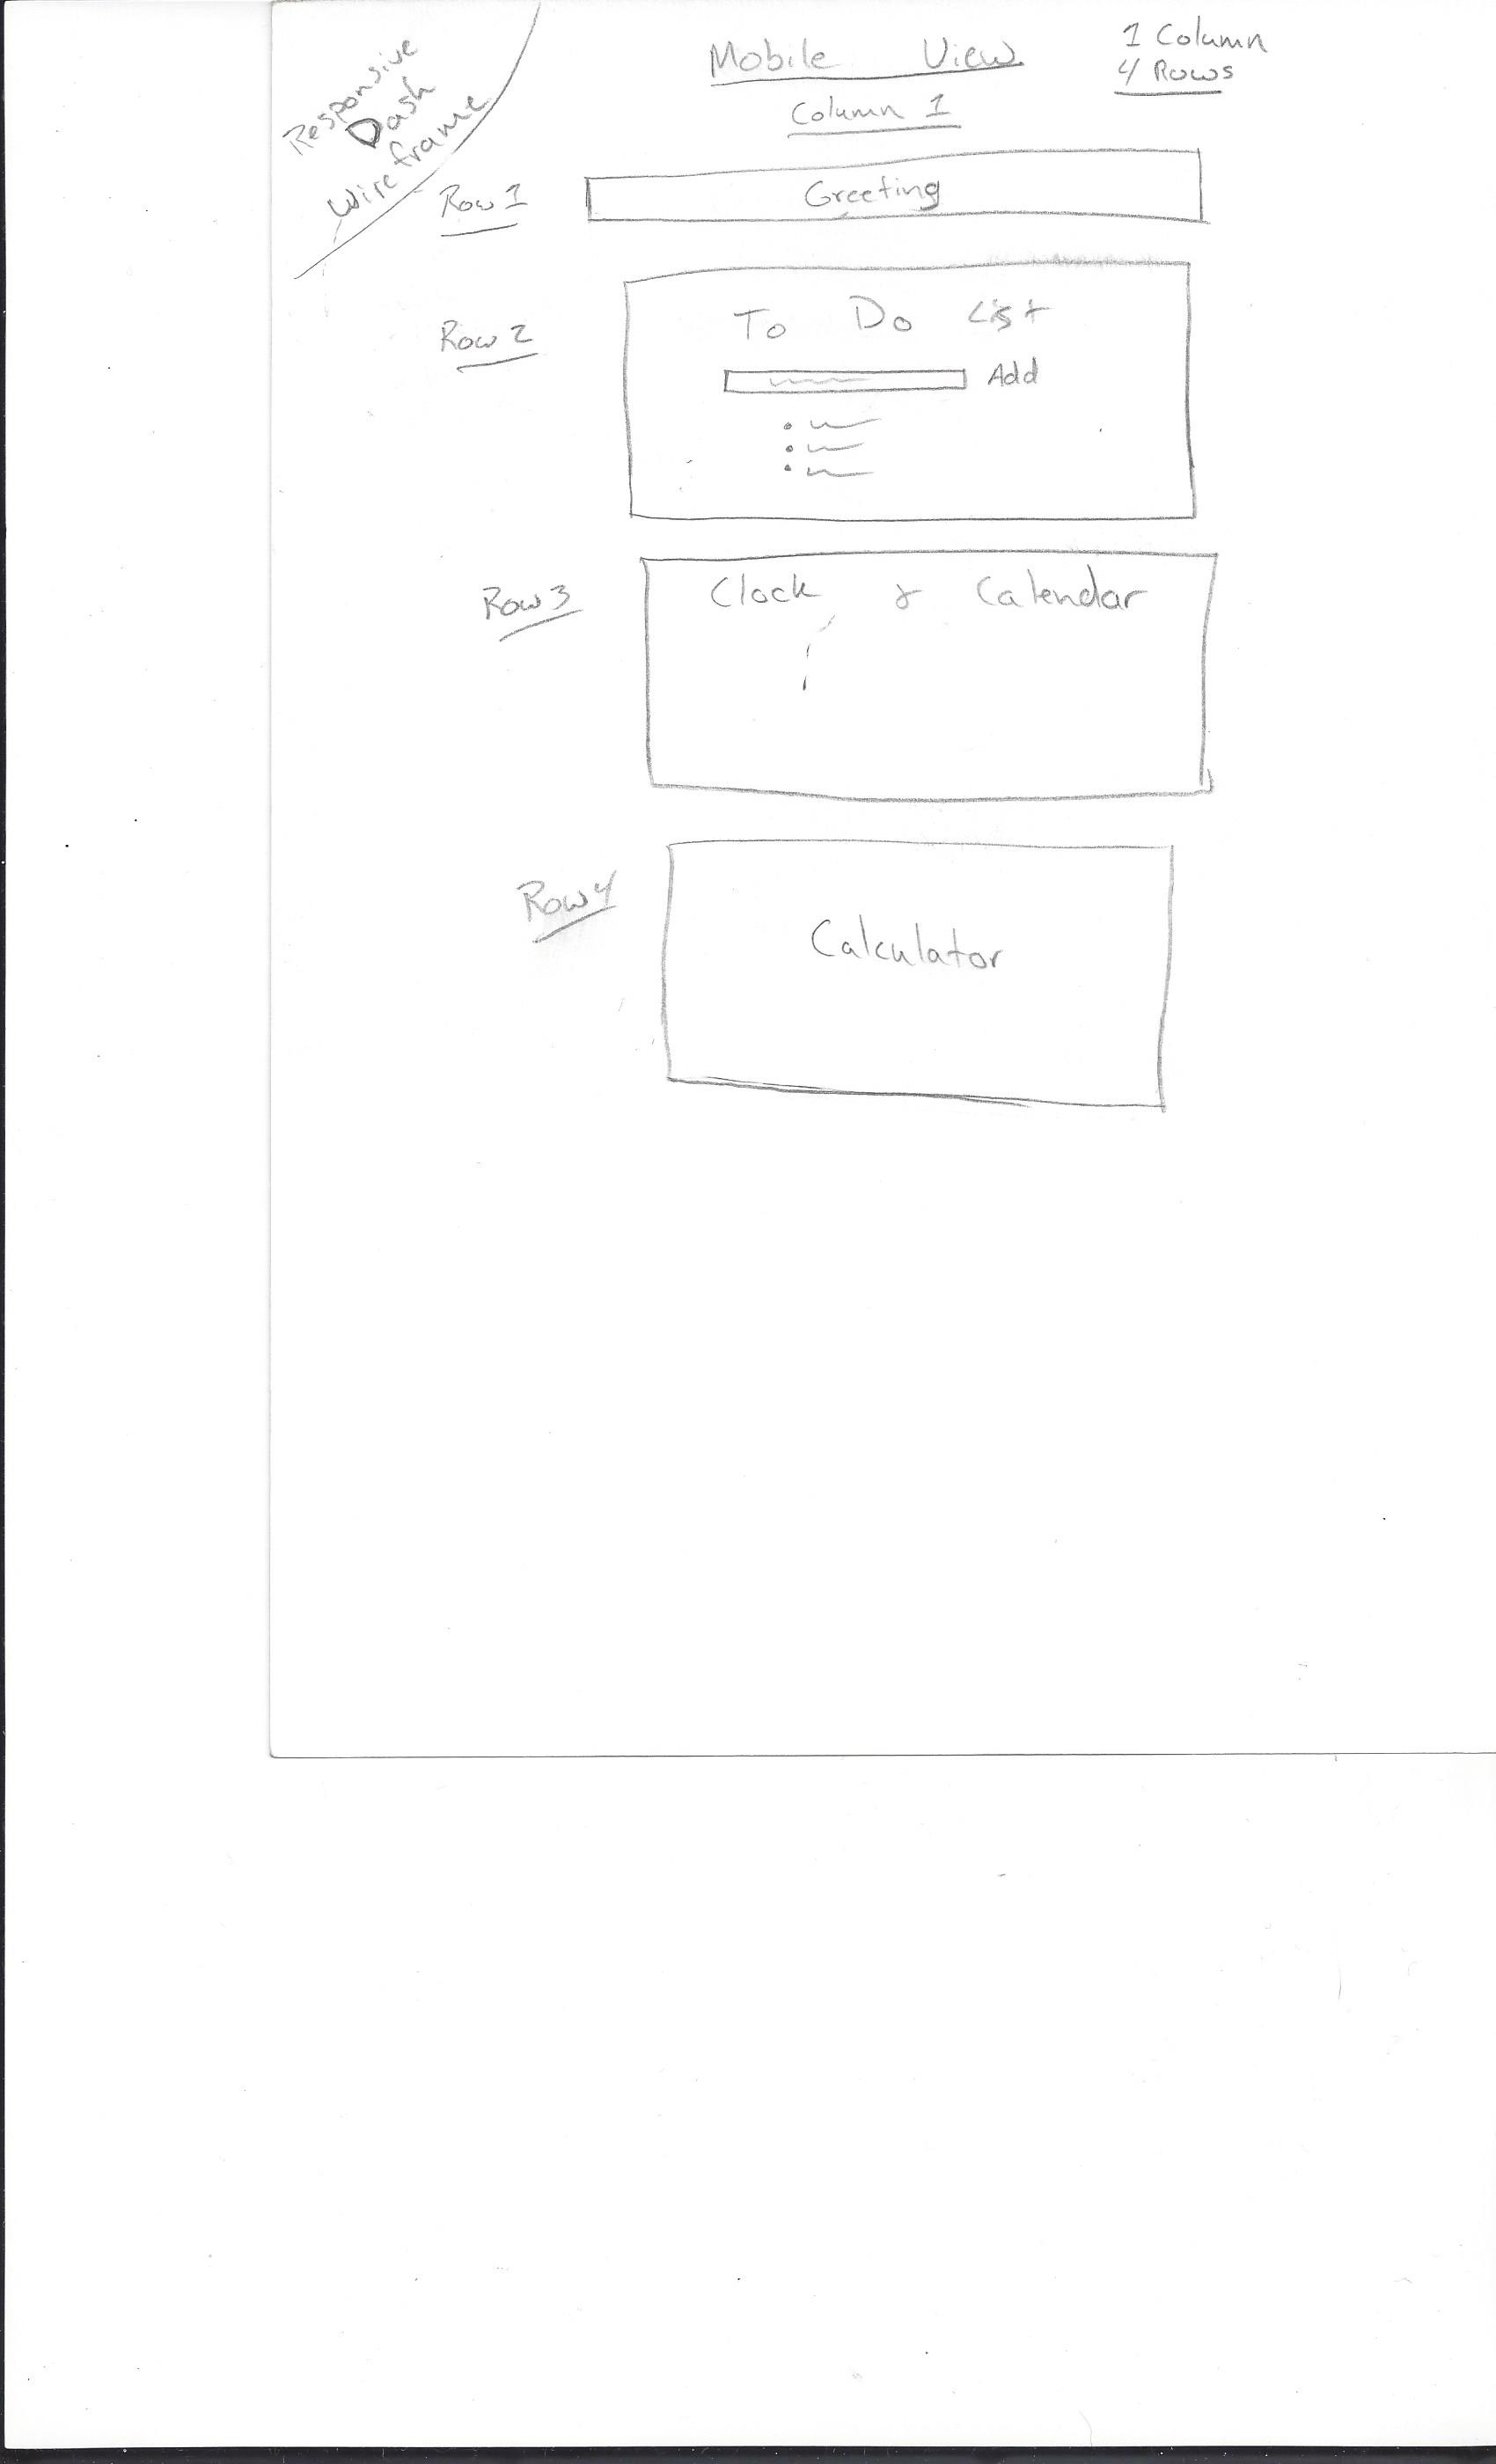 Responsive
Dash
Wireframe
Mobile View
1 Column
4 Rows
Column 1
Row 1
Greeting
Row 2
To Do List
Add
Row 3
Clock & Calendar
Row 4
Calculator